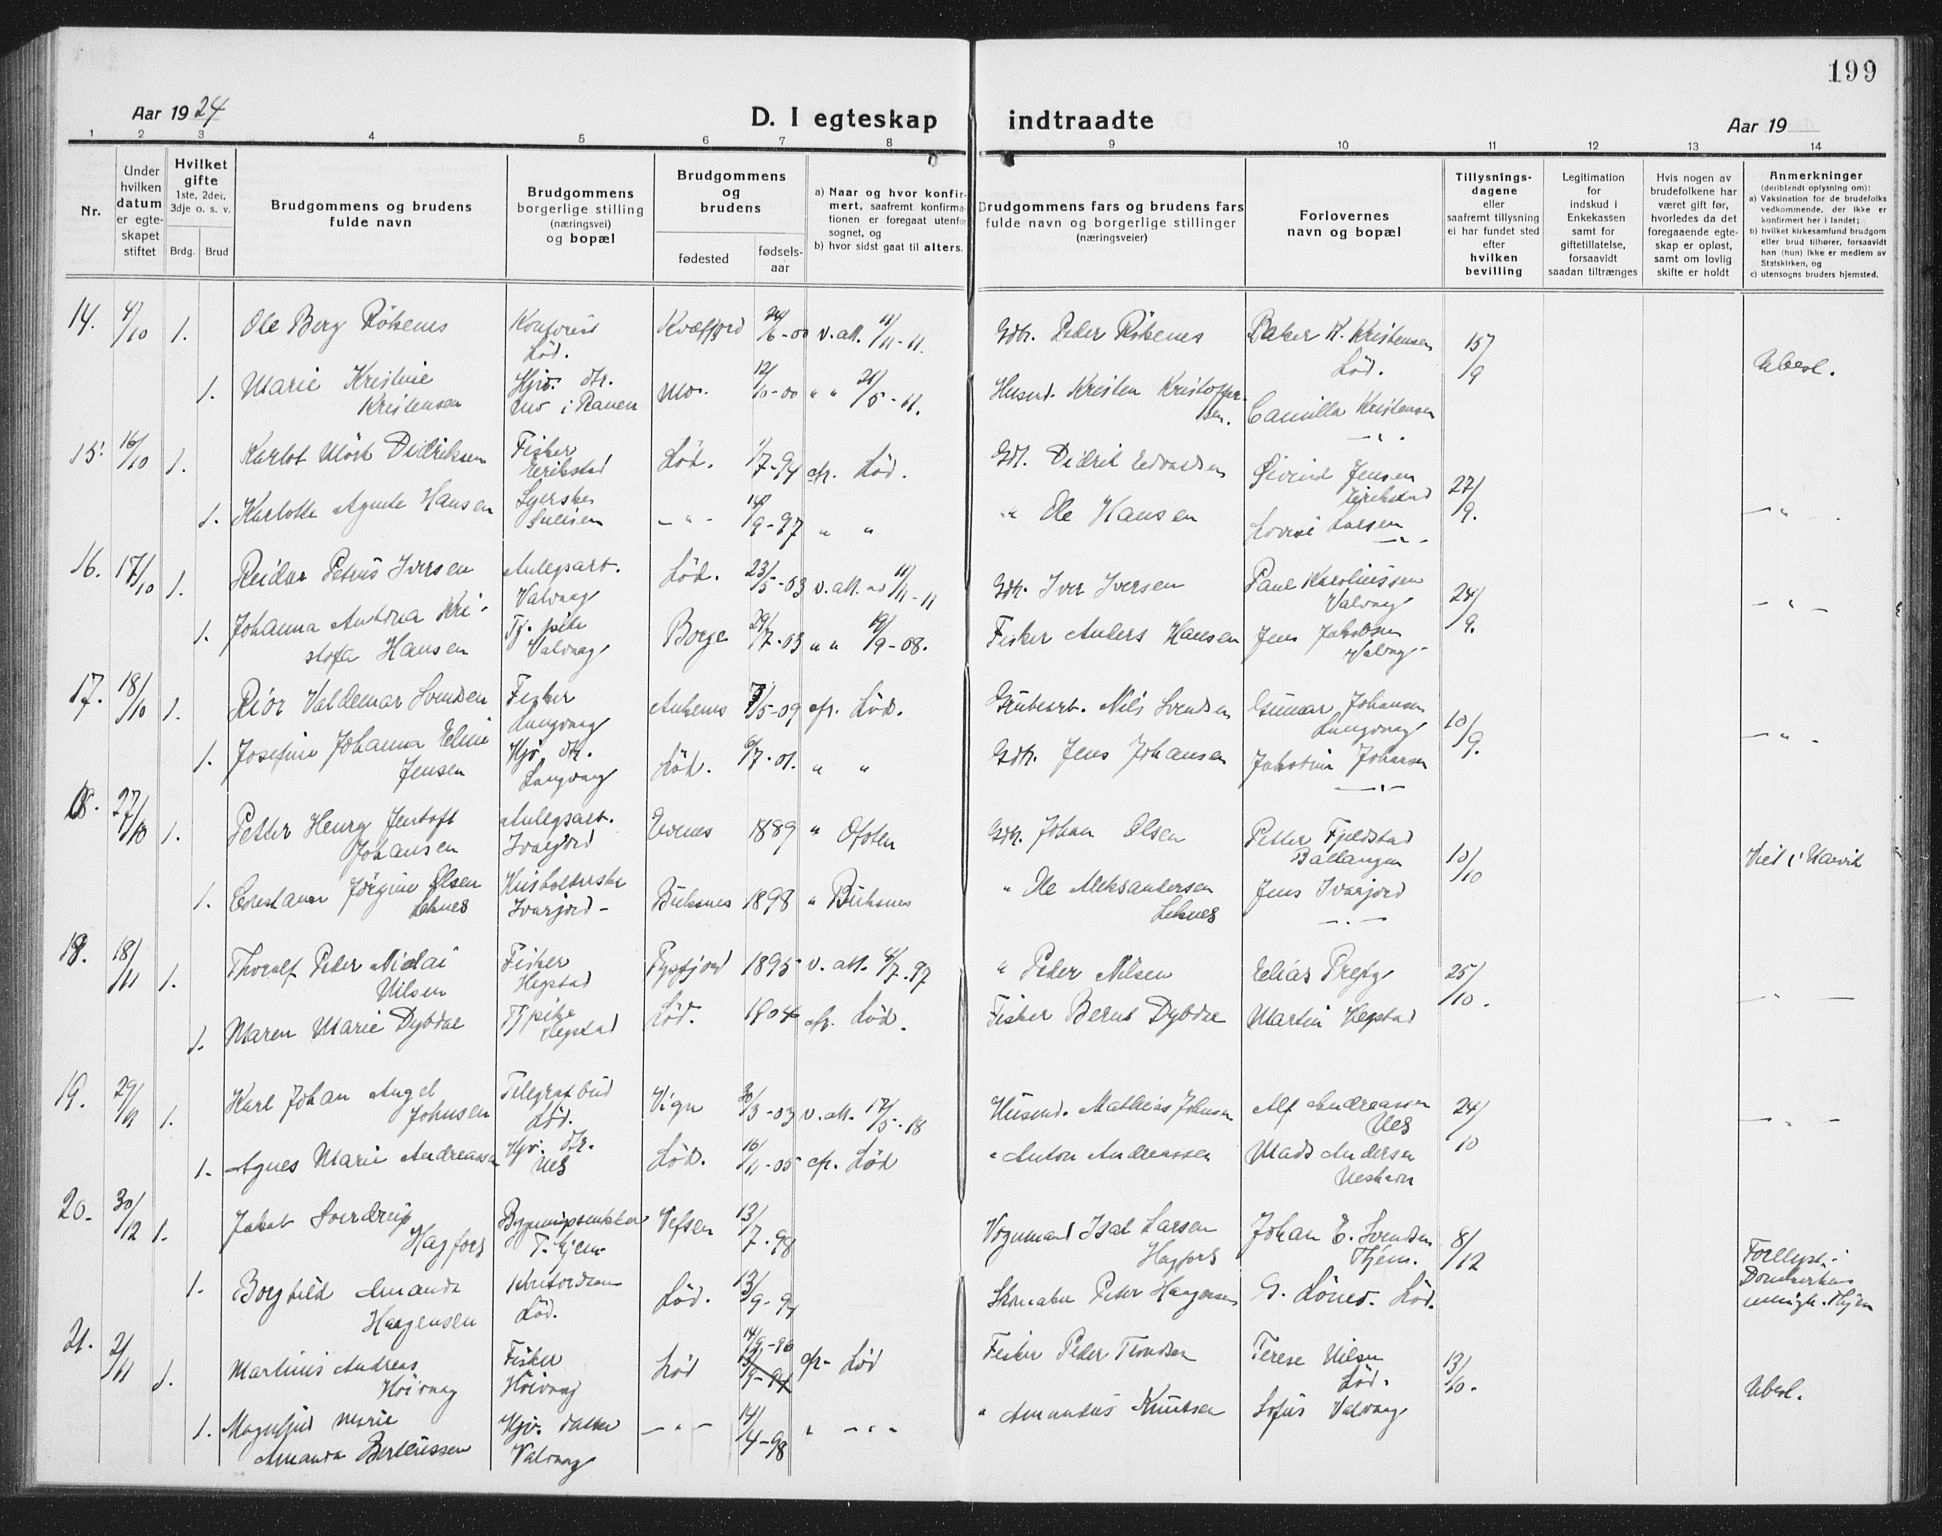 199
Aar 1924
D. I egteskap indtraadte
Aar 19
1 2 3 4 5 6 7 8 9 10 11 12 13 14
Nr.
Under hvilken datum er egteskapet stiftet
Hvilket gifte 1ste, 2det, 3dje o. s. v.
Brdg. Brud
Brudgommens og brudens fulde navn
Brudgommens borgerlige stilling (næringsvei) og bopæl
Brudgommens og brudens
fødested
fødselsaar
a) Naar og hvor konfirmert, saafremt konfirmationen er foregaat utenfor sognet, og
b) hvor sidst gaat til alters.
Brudgommens fars og brudens fars fulde navn og borgerlige stillinger (næringsveier)
Forlovernes navn og bopæl
Tillysningsdagene eller saafremt tillysning ei har fundet sted efter hvilken bevilling
Legitimation for indskud i Enkekassen samt for giftetillatelse, forsaavidt saadan tiltrænges
Hvis nogen av brudefolkene har været gift før, hvorledes da det foregaaende egteskap er opløst, samt om lovlig skifte er holdt
Anmerkninger (deriblandt oplysning om):
a) Vaksination for de brudefolks vedkommende, der ikke er konfirmert her i landet;
b) hvilket kirkesamfund brudgom eller brud tilhører, forsaavidt han (hun) ikke er medlem av Statskirken, og
c) utensogns bruders hjemsted.
14. 4/10 1. Ole Berg Rökenes Kontorist Lød. Kvæfjord 24/6-00 v. att. 11/11-11. Gdbr. Peder Rökenes Baker K. Kristensen Lød. 15/9 Ubesl.
1. Marie Kristine Kristensen Hjv. dtr. Mo i Ranen Mo. 12/10-00 " " 21/5-11. Husmd. Kristen Kristoffersen. Camilla Kristensen - " -
15. 16/10 1. Karlot Mörk Didriksen Fisker Erikstad Lød. 1/7-94 cfr. Lød. Gdb. Didrik Edvardsen Eivind Jensen Erikstad 27/9.
1. Karlotte Agnete Hansen Syerske - " - 14/9-97 " " " Ole Hansen Lovise Larsen - " - - " -
16. 17/10 1. Reidar Petrus Iversen Anlegsarb. Valvaag Lød. 23/5-03 v. att. 11/11-11 Gdbr. Iver Iversen Paul Karoliussen Valvaag 24/9. - " -
1. Johanna Andrea Kristofa Hansen Tj. pike Valvaag Borge 29/7-03 " " 19/9-08. Fisker Anders Hansen Jens Jakobsen Valvag
17. 18/10 1. Rior Valdemar Svendsen Fisker Langvaag Ankenes 7/5-09 cfr. Lød. Grubearb. Nils Svendsen Gunnar Johansen Langvaag 10/9. - " -
1. Josefine Johanna Eline Jensen Hjv. dtr. Langvaag Lød. 6/7-01. " " Gdbr. Jens Johansen Jakobine Johansen - " -
18. 27/10 1. Petter Henry Jentoft Johansen Anlegsarb. Ivarjord Evenes 1889 " Ofoten Gdbr. Johan Olsen Petter Fjeldstad Ballangen 10/10 Viet i Narvik
1. Jörgine Olsen Leknes Husholderske Ivarjord - Buksnes 1898 " Buksnes " Ole Aleksandersen Leknes Jens Ivarjord - " -
18. 18/11 1. Thoralf Peder Nicolai Nilsen Fisker Hepstad Tysfjord 1895 v. att. 4/7-97 " Peder Nilsen Elias 25/10. - " -
1. Maren Marie Dybdal Tj. pike Hepstad Lød. 1904 cfr. Lød. Fisker Bernt Dybdal Martin Hepstad
19. 29/11 1. Karl Johan Angel Johnsen Telegrafbud Lød. Vign 30/3-03 v. att. 12/5-18 Husmd. Mathias Johnsen Alf Andreassen Nes 24/10 - " -
1. Agnes Marie Andreassen Hjv. dtr. Nes Lød. 16/11-05 cfr. Lød " Anton Andreassen Mads Andersen
20. 30/12 1. Jakob Sverdrup Hagfors T. hjem Vefsen 13/7-98 Vognmand Isak Larsen Hagfors Johan E. Svendsen Thjem. 8/12
1. Borghild Amanda Haagensen Lød. Lød. 13/9-94 Skomaker Peter Haagensen G. Lød. Domkirkens menigh. Thjem
21. 2/11 1. Martinus Andreas Höivaag Fisker Höivaag Lød 14/9-96 13/9-94 cfr. Lød Fisker Peder Trondsen Terese Nilsen Lød. 13/10. Ubesl.
1. Magnhild Marie Amanda Berteussen Hjv. datter Valvaag - " - 14/4-98 " - " - " Amandus Knutsen Sofus Valvaag